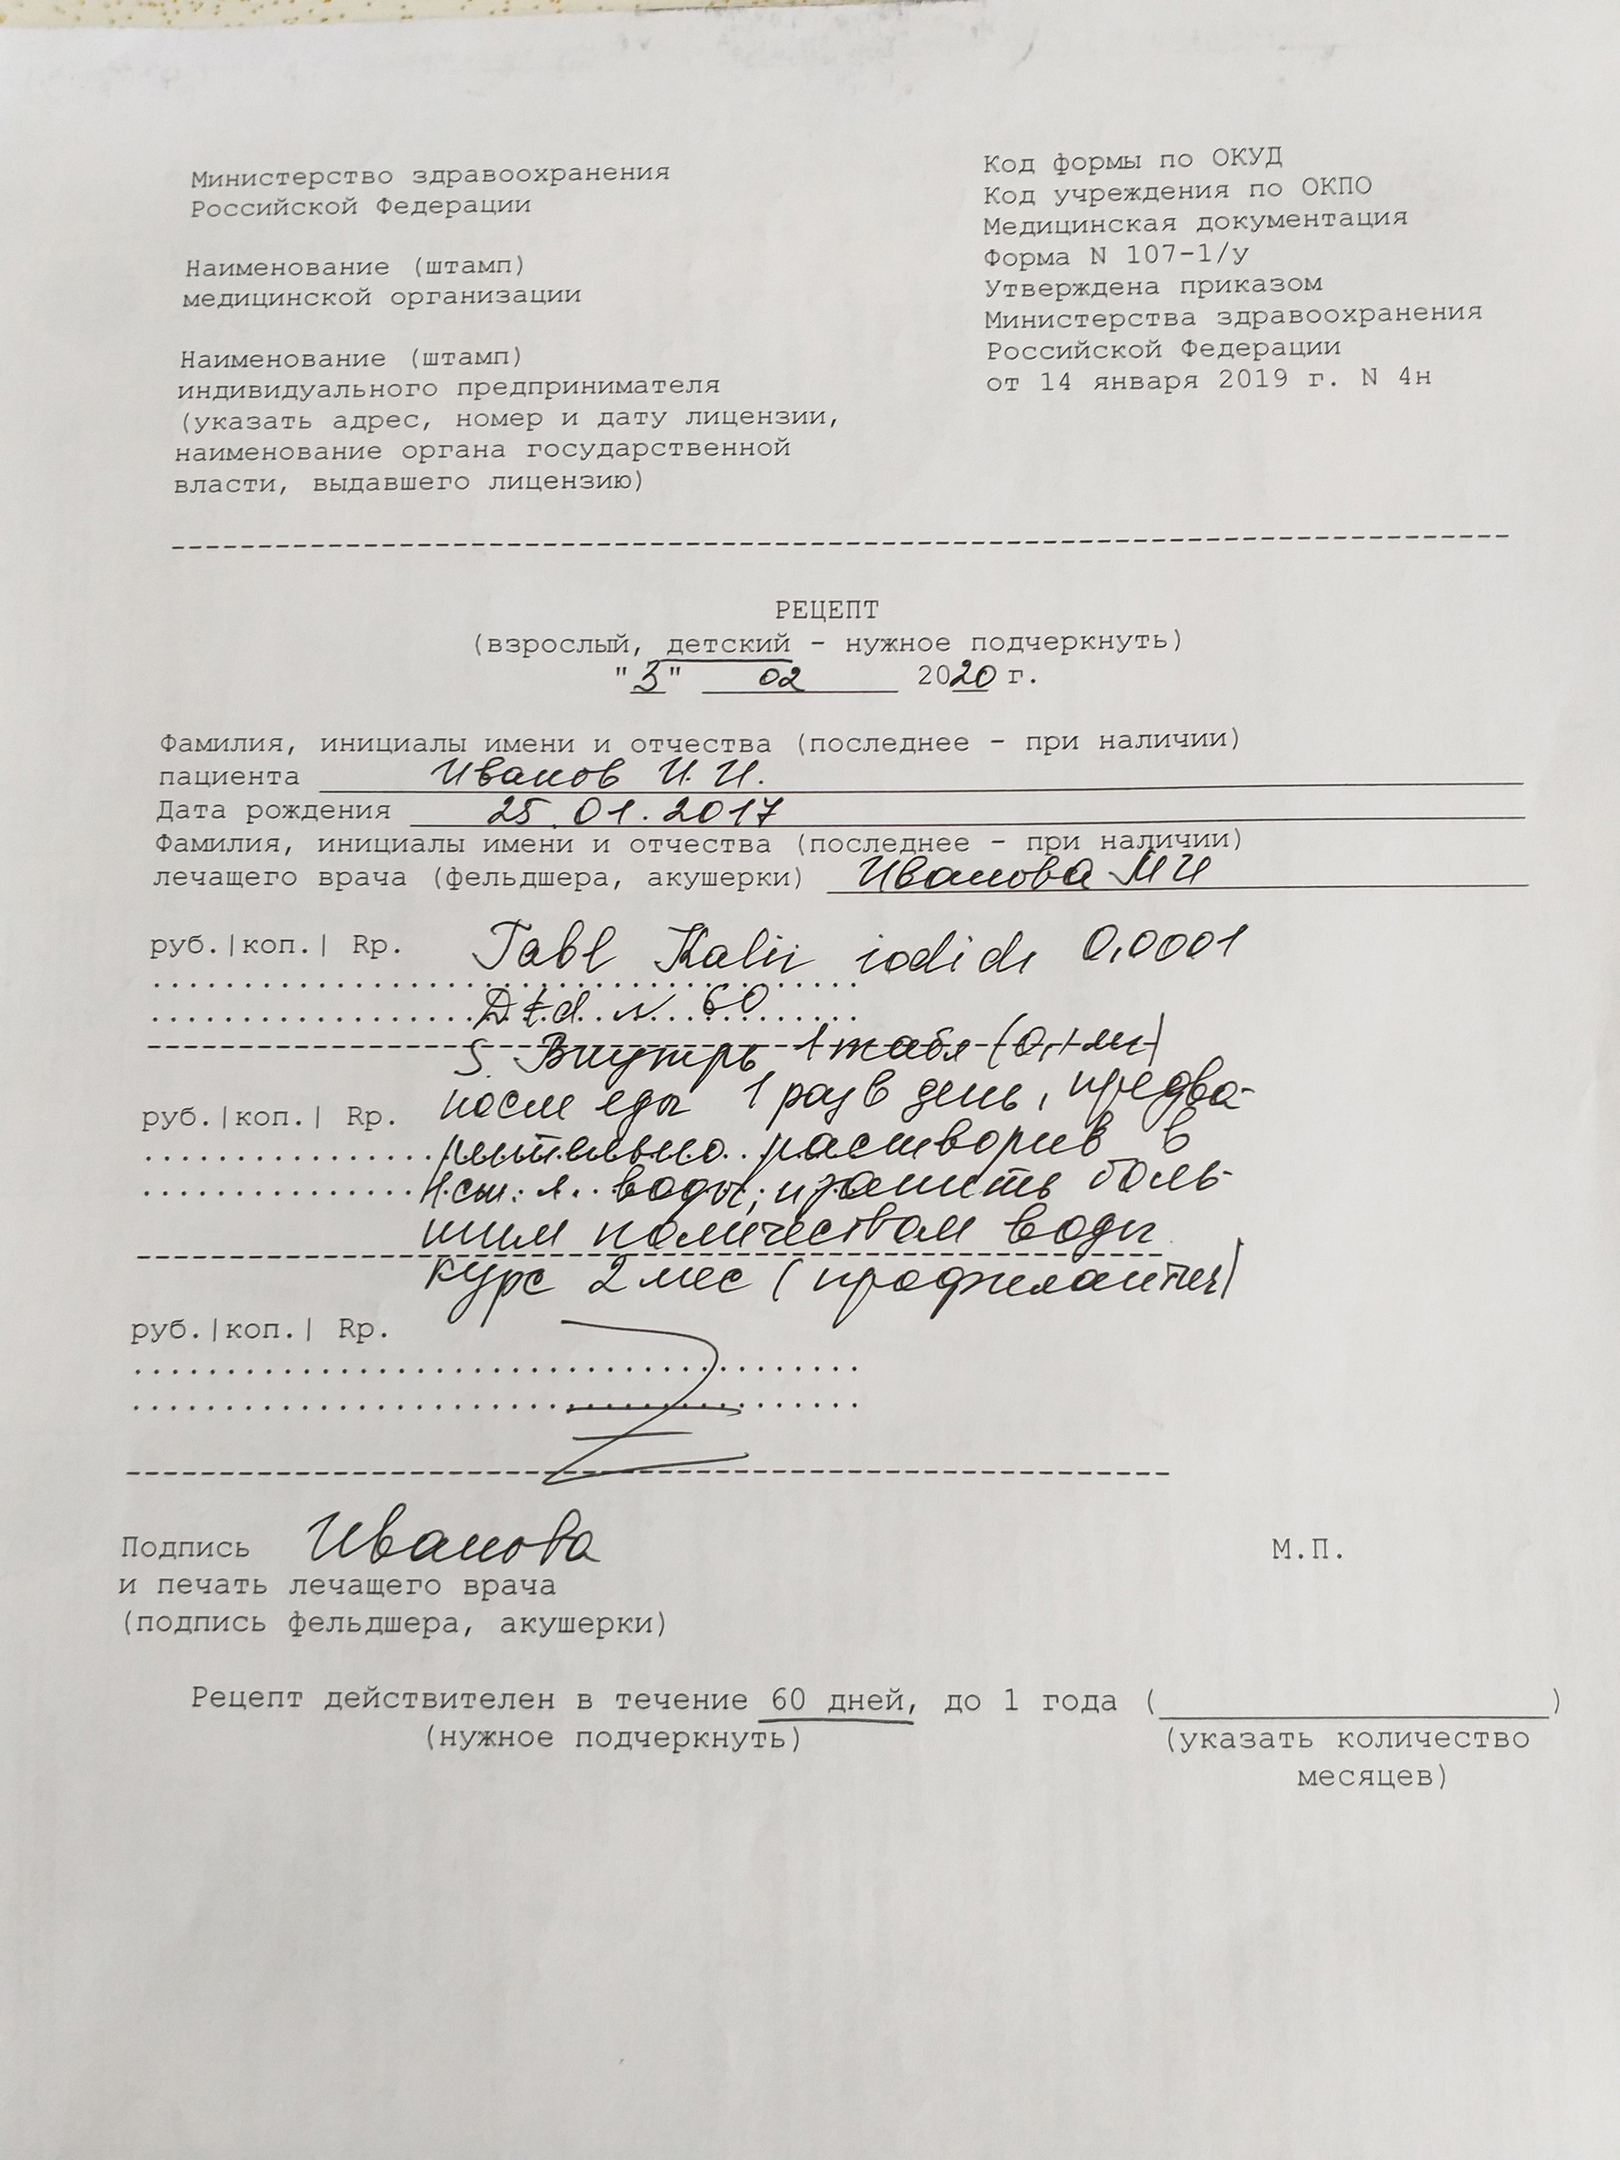 Министерство здравоохранения
Российской Федерации
Наименование (штамп)
медицинской организации
Наименование (штамп)
индивидуального предпринимателя
(указать адрес, номер и дату лицензии,
наименование органа государственной
власти, выдавшего лицензию)
Код формы по ОКУД
Код учреждения по ОКПО
Медицинская документация
Форма N 107-1/у
Утверждена приказом
Министерства здравоохранения
Российской Федерации
от 14 января 2019 г. N 4н
РЕЦЕПТ
(взрослый, детский - нужное подчеркнуть)
"3" 02 2020 г.
Фамилия, инициалы имени и отчества (последнее - при наличии)
пациента Иванов И. И.
Дата рождения 25.01.2017
Фамилия, инициалы имени и отчества (последнее - при наличии)
лечащего врача (фельдшера, акушерки) Иванова М И
руб.|коп.| Rp. Tabl Kalii iodidi 0,0001
D.t.d. N 60
S. Внутрь 1 табл (0,1 мг)
после еды 1 раз в день, предва-
руб.|коп.| Rp.
рительно растворив в
1 ст. л. воды, запить боль-
шим количеством воды
курс 2 мес (профилактич)
руб.|коп.| Rp.
Подпись Иванова
и печать лечащего врача
(подпись фельдшера, акушерки)
М.П.
Рецепт действителен в течение 60 дней, до 1 года (                    )
(нужное подчеркнуть) (указать количество
месяцев)